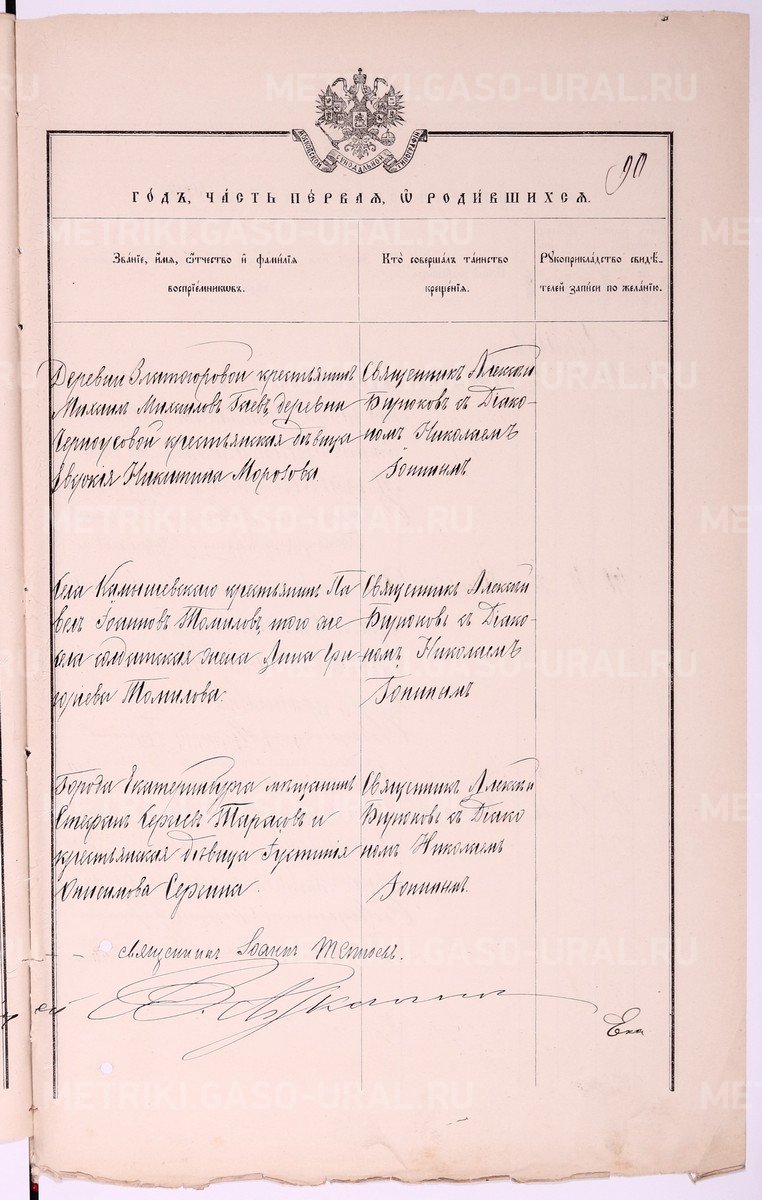 METRIKI.GASO-URAL.RU
МОСКОВСКОЙ СѴНОДАЛЬНОЙ ТИПОГРАФІИ
90
ГО́ДЪ, ЧА́СТЬ ПЕ́РВАЯ, Ѡ РОДИ́ВШИХСЯ.
Зва́нїе, и́мя, ѻ́тчество и҆ фами́лїя
воспрїе́мникѡвъ.
Кто̀ соверша́лъ та́инство
креще́нїя.
Рꙋкоприкла́дство свидѣ́-
телей за́писи по жела́нїю.
Деревни Златогоровой крестьянинъ
Михаилъ Михаиловъ Гаевъ, деревни
Черноусовой крестьянская дѣвица
Евдокія Никитина Морозова.
Священникъ Алексій
Бирюковъ съ Діако-
номъ Николаемъ
Топинымъ
Села Камышевскаго крестьянинъ Па
велъ Іоанновъ Томиловъ, того же
села солдатская жена Анна
Томилова.
Священникъ Алексій
Бирюковъ съ Діако-
номъ Николаемъ
Топинымъ
Города Екатеринбурга мѣщанинъ
Стефанъ Сергіевъ Тарасовъ и
крестьянская дѣвица Іустинія
Онисимова Сергина.
Священникъ Алексій
Бирюковъ съ Діако
номъ Николаемъ
Топинымъ.
священникъ Іоаннъ
Ека